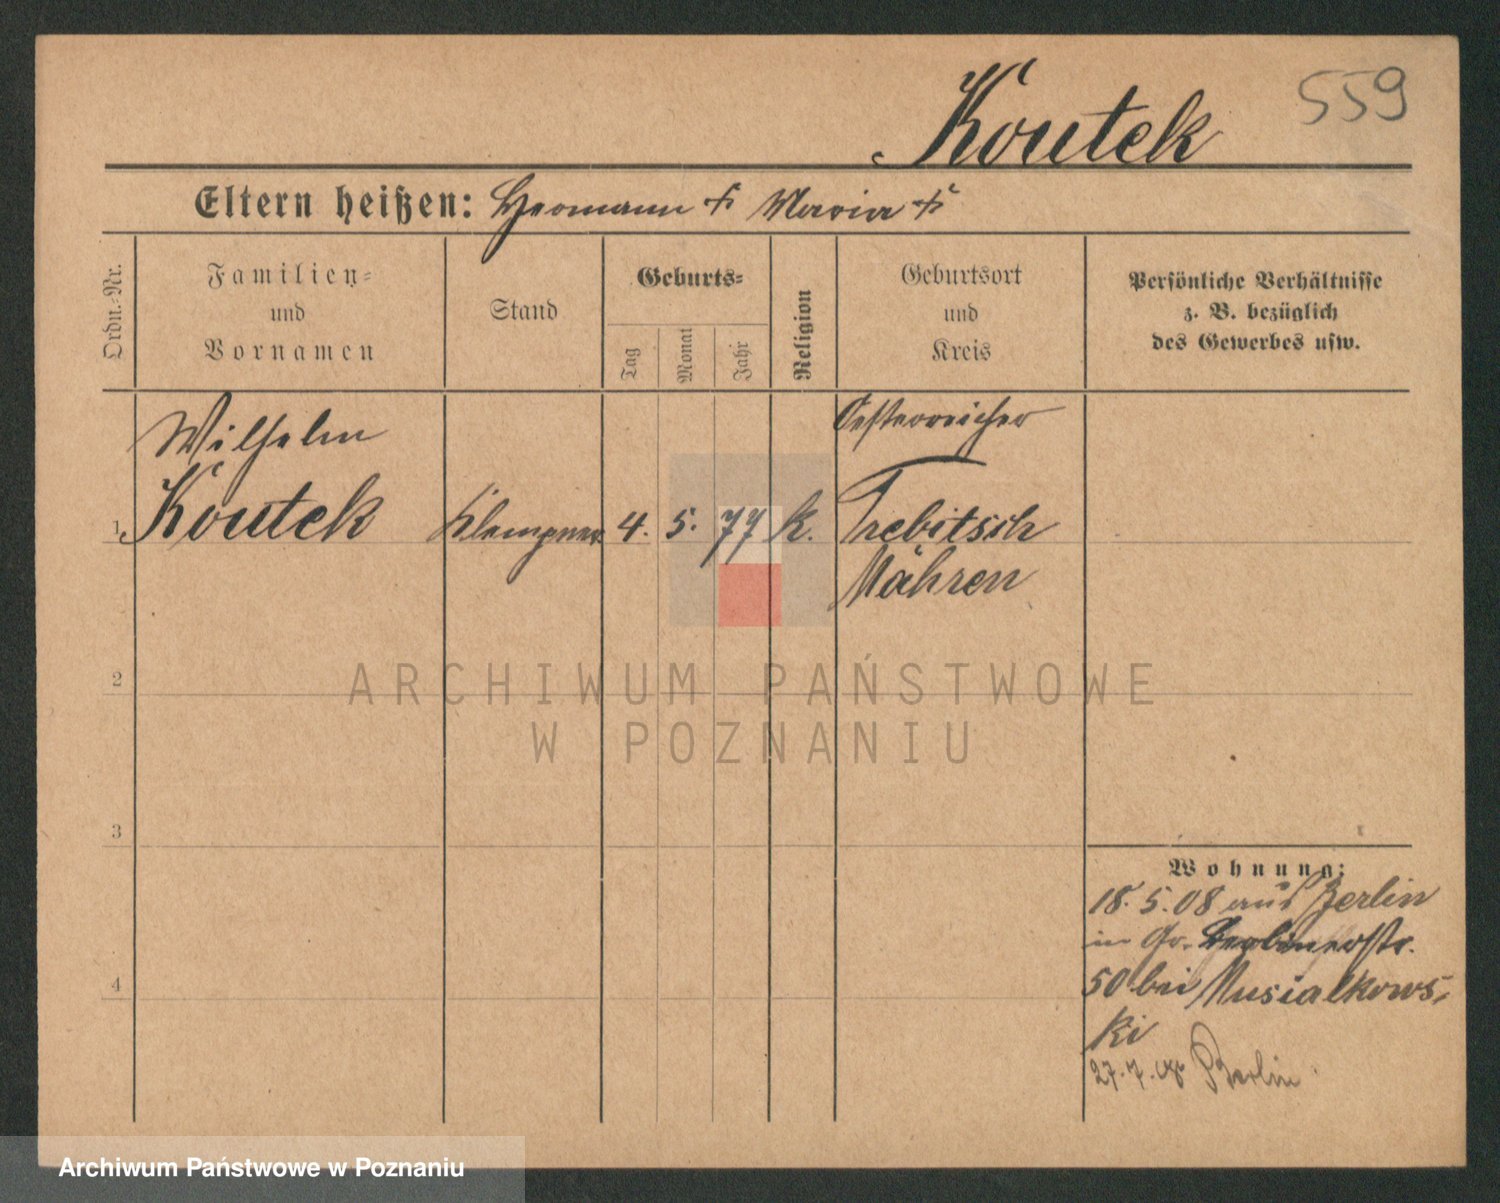 Koutek
559
Eltern heißen: Hermann † Maria †
Ordn.-Nr.
Familien-
und
Vornamen
Stand
Geburts-
Tag
Monat
Jahr
Religion
Geburtsort
und
Kreis
Persönliche Verhältnisse
z. B. bezüglich
des Gewerbes usw.
Wilhelm
Oesterreicher
1 Koutek Klempner 4. 5. 77 k. Trebitsch
Mähren
2
ARCHIWUM PAŃSTWOWE
W POZNANIU
3
Wohnung:
18. 5. 08 aus Berlin
in Gr. Berlinerstr.
4
50 bei Musialkows-
ki
27. 7. 08 Berlin
Archiwum Państwowe w Poznaniu